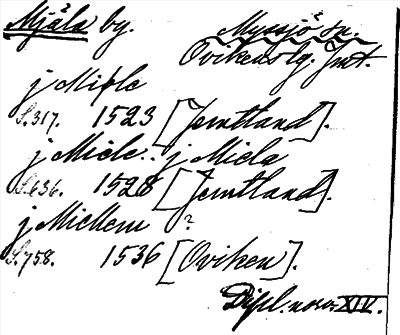 Mjäla by. Myssjö sn.
Ovikens tg. Jmt.
j Miple
S.317. 1523 [Jemtland].
j Miele. j Miela
S.636. 1528 [Jemtland].
j Miellem ?
S.758. 1536 [Oviken].
Dipl. norv. XIV.